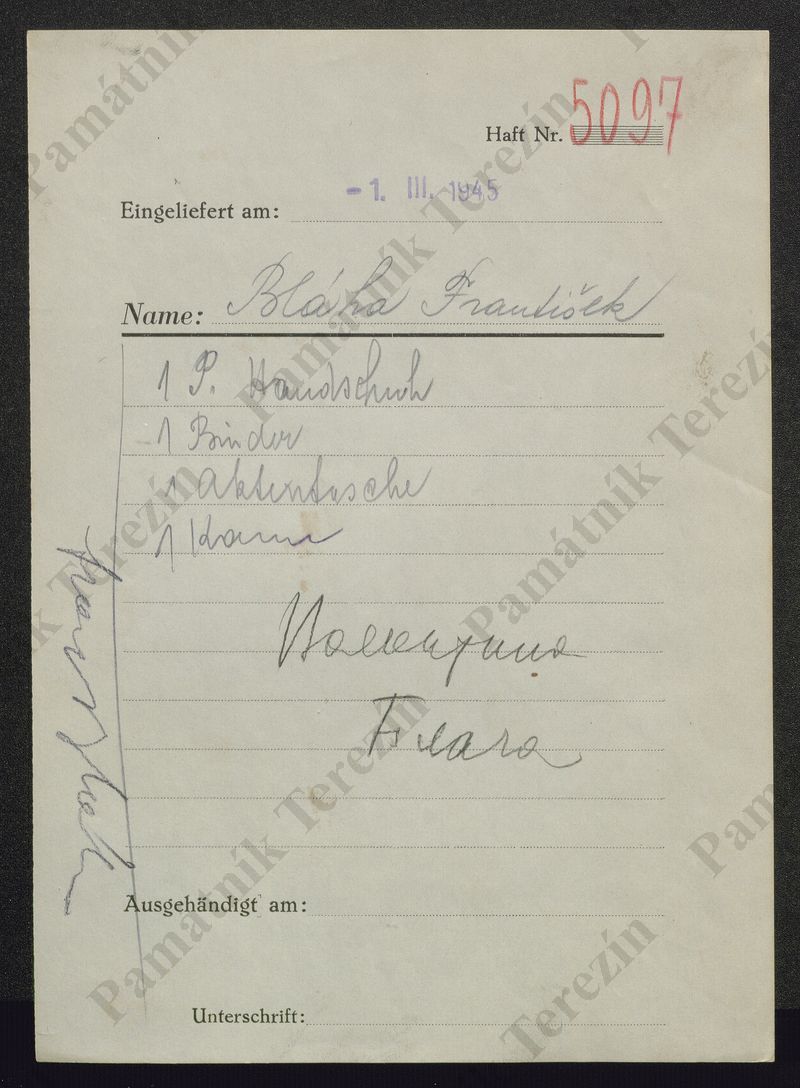 Haft Nr. 5097
Eingeliefert am: - 1. III. 1945
Name: Bláha František
1 P. Handschuh
1 Binder
1 Aktentasche
1 Kamm
Ausgehändigt am:
Unterschrift:
Památník Terezín